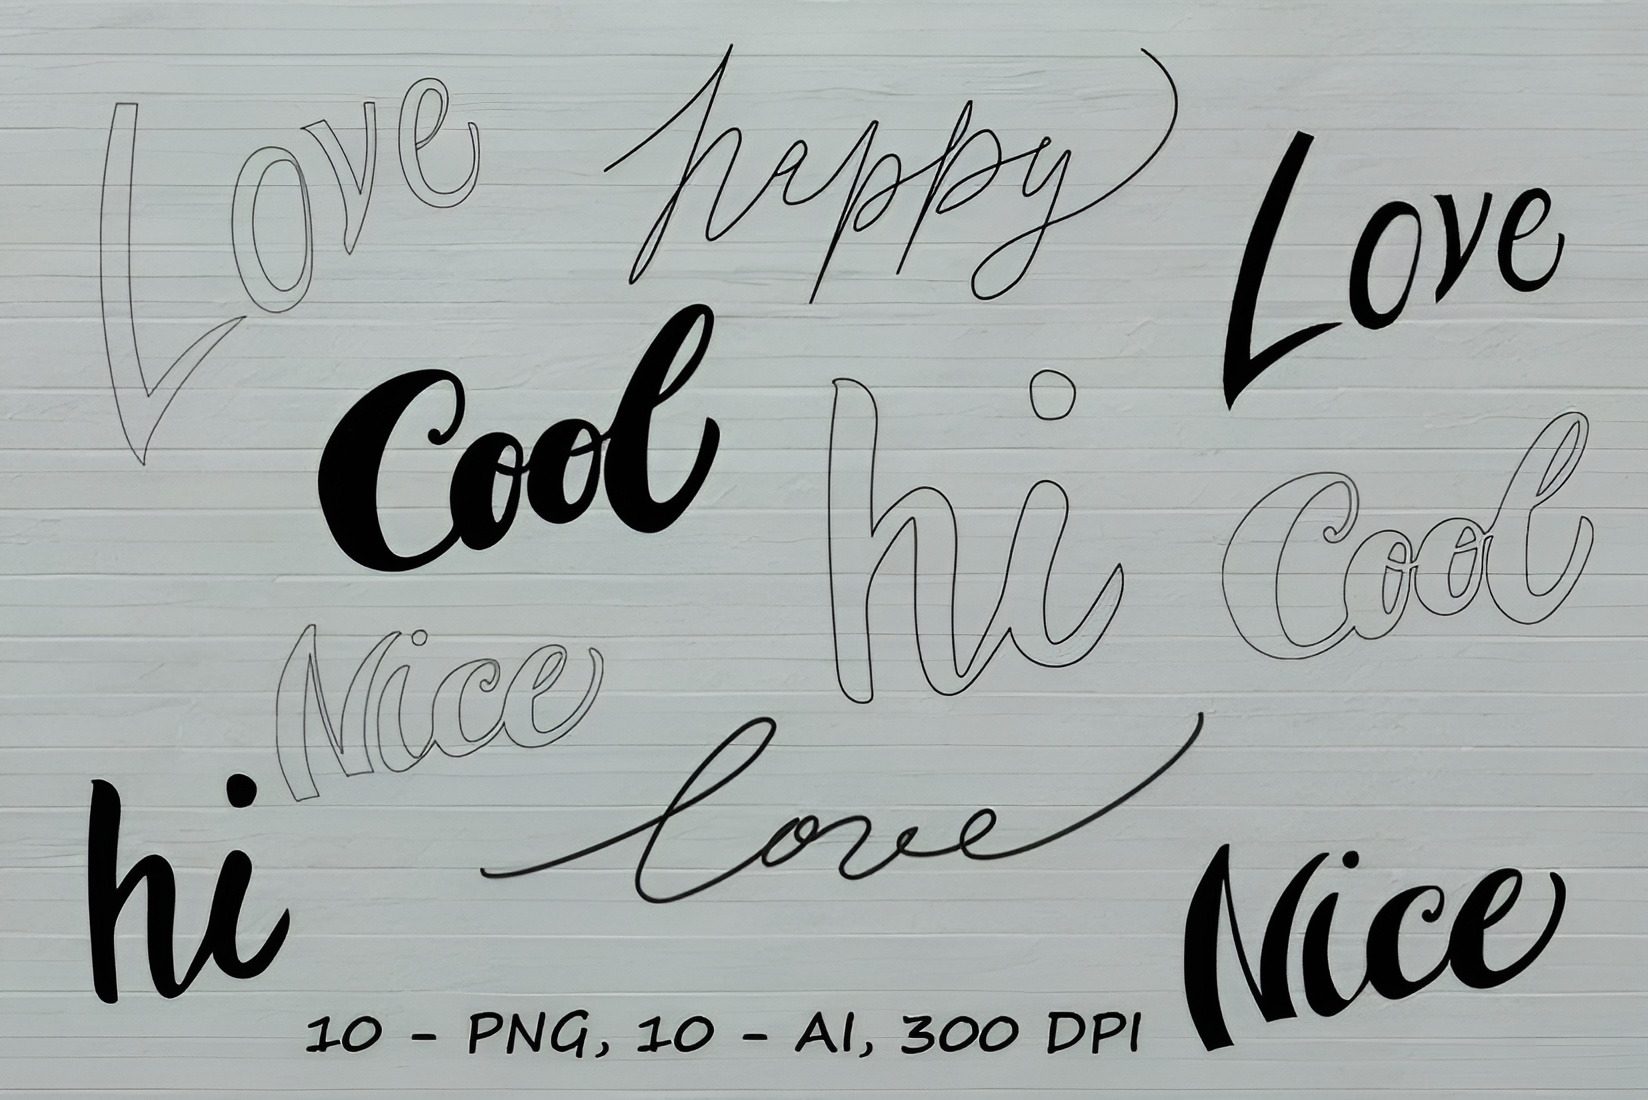 Love
happy
Love
Cool
hi
Cool
Nice
love
hi
Nice
10 - PNG, 10 - AI, 300 DPI